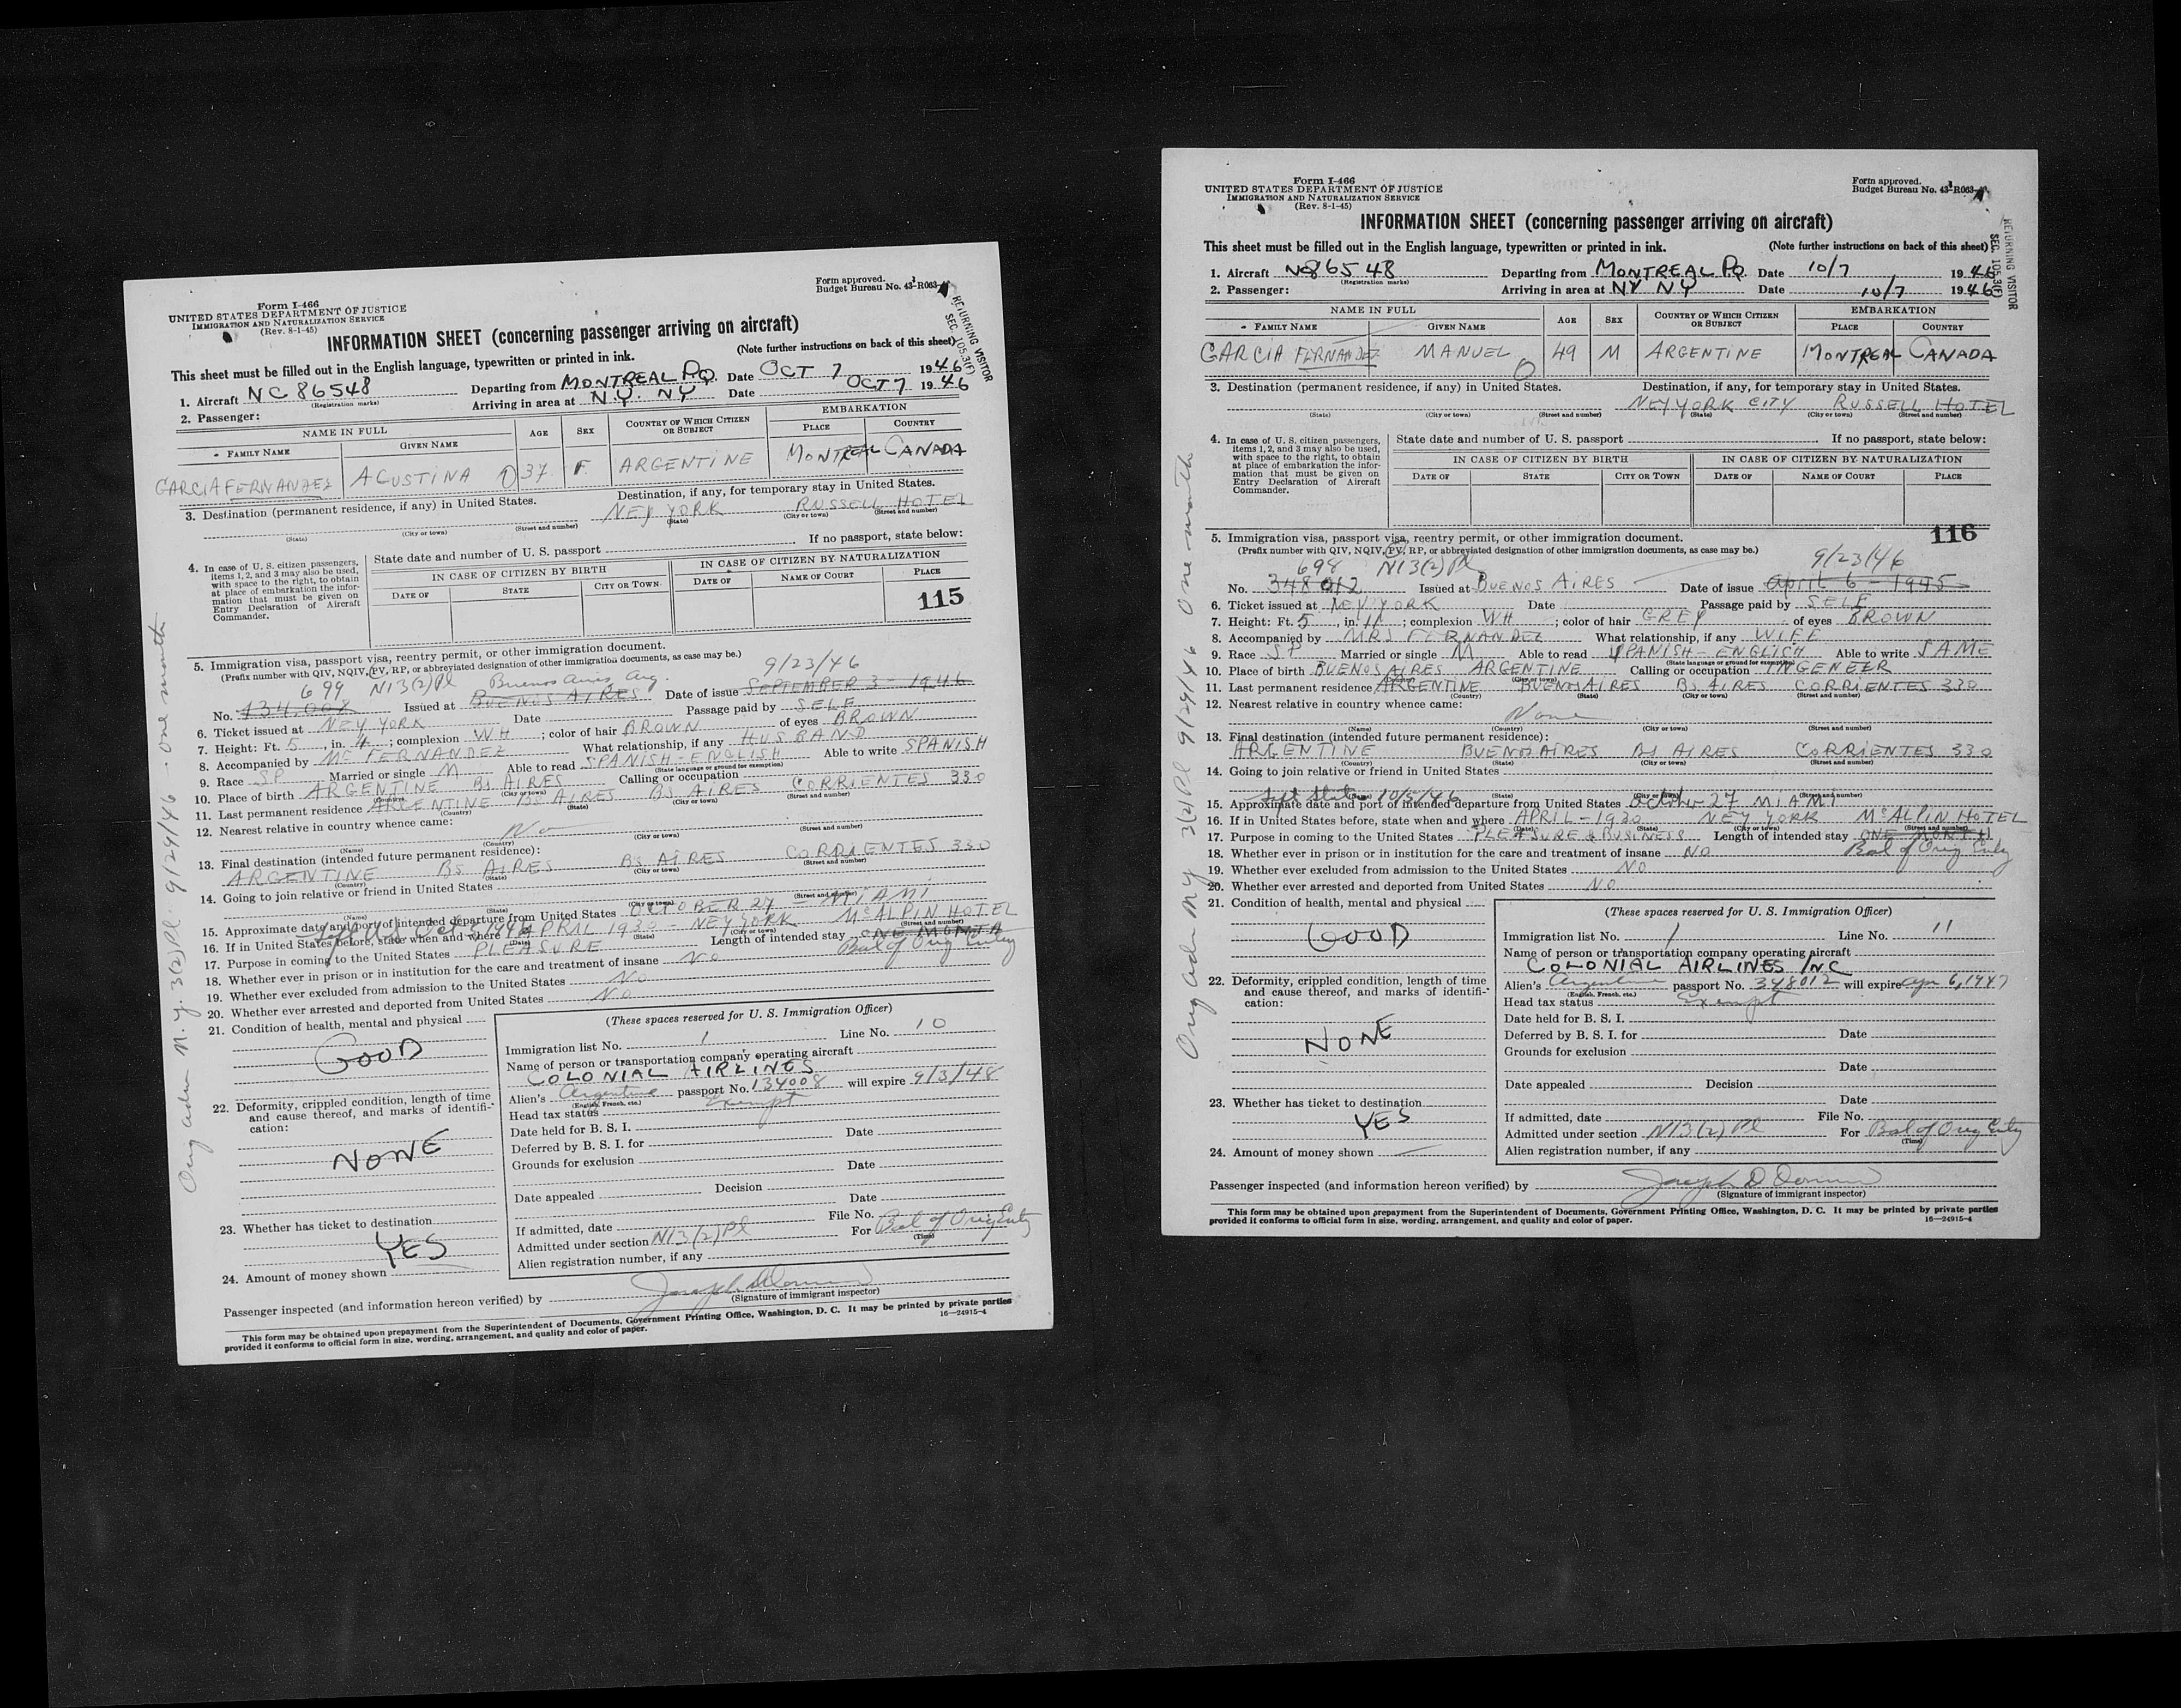 Form I-466
UNITED STATES DEPARTMENT OF JUSTICE
IMMIGRATION AND NATURALIZATION SERVICE
(Rev. 8-1-45)
Form approved.
Budget Bureau No. 43-R063
INFORMATION SHEET (concerning passenger arriving on aircraft)
This sheet must be filled out in the English language, typewritten or printed in ink. (Note further instructions on back of this sheet)
RETURNING VISITOR
SEC. 105.3(F)
1. Aircraft NC 86548 Departing from MONTREAL PQ. Date OCT 7 1946
(Registration marks)
2. Passenger: Arriving in area at N.Y. NY Date OCT 7 1946
NAME IN FULL AGE SEX COUNTRY OF WHICH CITIZEN OR SUBJECT EMBARKATION
FAMILY NAME GIVEN NAME PLACE COUNTRY
GARCIA FERNANDEZ AGUSTINA 37 F ARGENTINE MONTREAL CANADA
3. Destination (permanent residence, if any) in United States. Destination, if any, for temporary stay in United States.
NEY YORK RUSSELL HOTEL
(State) (City or town) (Street and number) (State) (City or town) (Street and number)
4. In case of U. S. citizen passengers, items 1, 2, and 3 may also be used, with space to the right, to obtain at place of embarkation the information that must be given on Entry Declaration of Aircraft Commander.
State date and number of U. S. passport If no passport, state below:
IN CASE OF CITIZEN BY BIRTH IN CASE OF CITIZEN BY NATURALIZATION
DATE OF STATE CITY OR TOWN DATE OF NAME OF COURT PLACE
115
5. Immigration visa, passport visa, reentry permit, or other immigration document.
(Prefix number with QIV, NQIV, PV, RP, or abbreviated designation of other immigration documents, as case may be.)
699 N13(2)Pl Buenos Aires Arg. 9/23/46
No. 134.008 Issued at BUENOS AIRES Date of issue SEPTEMBER 3 - 1946
6. Ticket issued at NEY YORK Date Passage paid by SELF
7. Height: Ft. 5, in. 4; complexion WH; color of hair BROWN of eyes BROWN
8. Accompanied by Mr FERNANDEZ What relationship, if any HUSBAND
9. Race SP Married or single M Able to read SPANISH-ENGLISH Able to write SPANISH
(State language or ground for exemption)
10. Place of birth ARGENTINE Bs AIRES Calling or occupation
11. Last permanent residence ARGENTINE Bs AIRES Bs AIRES CORRIENTES 330
(Country) (State) (City or town) (Street and number)
12. Nearest relative in country whence came:
No
(Name) (Country) (City or town) (Street and number)
13. Final destination (intended future permanent residence):
ARGENTINE Bs AIRES Bs AIRES CORRIENTES 330
(Country) (State) (City or town) (Street and number)
14. Going to join relative or friend in United States
(Name) (State) (City or town) (Street and number)
15. Approximate date and port of intended departure from United States OCTOBER 27 - MIAMI
16. If in United States before, state when and where APRIL 1930 - NEY YORK McALPIN HOTEL
(Date) (State) (City or town) (Street and number)
17. Purpose in coming to the United States PLEASURE Length of intended stay ONE MONTH
Bal of Orig Entry
18. Whether ever in prison or in institution for the care and treatment of insane No
19. Whether ever excluded from admission to the United States No
20. Whether ever arrested and deported from United States No
21. Condition of health, mental and physical
GOOD
22. Deformity, crippled condition, length of time and cause thereof, and marks of identification:
NONE
23. Whether has ticket to destination
YES
24. Amount of money shown
(These spaces reserved for U. S. Immigration Officer)
Immigration list No. 1 Line No. 10
Name of person or transportation company operating aircraft
COLONIAL AIRLINES
Alien's Argentine passport No. 134008 will expire 9/3/48
(English, French, etc.)
Head tax status Exempt
Date held for B. S. I.
Deferred by B. S. I. for Date
Grounds for exclusion
Date
Date appealed Decision
Date
If admitted, date File No.
Admitted under section N13(2)Pl For Bal of Orig Entry
(Time)
Alien registration number, if any
Passenger inspected (and information hereon verified) by
(Signature of immigrant inspector)
This form may be obtained upon prepayment from the Superintendent of Documents, Government Printing Office, Washington, D. C. It may be printed by private parties
provided it conforms to official form in size, wording, arrangement, and quality and color of paper. 16—24915-4
Orig adm N.Y. 3(2)Pl. 9/24/46 - one month
Form I-466
UNITED STATES DEPARTMENT OF JUSTICE
IMMIGRATION AND NATURALIZATION SERVICE
(Rev. 8-1-45)
Form approved.
Budget Bureau No. 43-R063
INFORMATION SHEET (concerning passenger arriving on aircraft)
This sheet must be filled out in the English language, typewritten or printed in ink. (Note further instructions on back of this sheet)
RETURNING VISITOR
SEC. 105.3(F)
1. Aircraft N86548 Departing from MONTREAL PQ. Date 10/7 1946
(Registration marks)
2. Passenger: Arriving in area at NY NY Date 10/7 1946
NAME IN FULL AGE SEX COUNTRY OF WHICH CITIZEN OR SUBJECT EMBARKATION
FAMILY NAME GIVEN NAME PLACE COUNTRY
GARCIA FERNANDEZ MANUEL 49 M ARGENTINE MONTREAL CANADA
3. Destination (permanent residence, if any) in United States. Destination, if any, for temporary stay in United States.
NEY YORK CITY RUSSELL HOTEL
(State) (City or town) (Street and number) (State) (City or town) (Street and number)
4. In case of U. S. citizen passengers, items 1, 2, and 3 may also be used, with space to the right, to obtain at place of embarkation the information that must be given on Entry Declaration of Aircraft Commander.
State date and number of U. S. passport If no passport, state below:
IN CASE OF CITIZEN BY BIRTH IN CASE OF CITIZEN BY NATURALIZATION
DATE OF STATE CITY OR TOWN DATE OF NAME OF COURT PLACE
116
5. Immigration visa, passport visa, reentry permit, or other immigration document.
(Prefix number with QIV, NQIV, PV, RP, or abbreviated designation of other immigration documents, as case may be.)
698 N13(2)Pl 9/23/46
No. 348012 Issued at BUENOS AIRES Date of issue April 6 - 1945
6. Ticket issued at NEY YORK Date Passage paid by SELF
7. Height: Ft. 5, in. 11; complexion WH; color of hair GREY of eyes BROWN
8. Accompanied by MRS FERNANDEZ What relationship, if any WIFE
9. Race SP Married or single M Able to read SPANISH-ENGLISH Able to write SAME
(State language or ground for exemption)
10. Place of birth BUENOS AIRES ARGENTINE Calling or occupation INGENEER
11. Last permanent residence ARGENTINE BUENOS AIRES Bs AIRES CORRIENTES 330
(Country) (State) (City or town) (Street and number)
12. Nearest relative in country whence came:
None
(Name) (Country) (City or town) (Street and number)
13. Final destination (intended future permanent residence):
ARGENTINE BUENOS AIRES Bs AIRES CORRIENTES 330
(Country) (State) (City or town) (Street and number)
14. Going to join relative or friend in United States
Left States 10/5/46
(Name) (State) (City or town) (Street and number)
15. Approximate date and port of intended departure from United States October 27 MIAMI
16. If in United States before, state when and where APRIL - 1930 NEY YORK McALPIN HOTEL
(Date) (State) (City or town) (Street and number)
17. Purpose in coming to the United States PLEASURE & BUSINESS Length of intended stay ONE MONTH
Bal of Orig Entry
18. Whether ever in prison or in institution for the care and treatment of insane NO
19. Whether ever excluded from admission to the United States NO
20. Whether ever arrested and deported from United States NO
21. Condition of health, mental and physical
GOOD
22. Deformity, crippled condition, length of time and cause thereof, and marks of identification:
NONE
23. Whether has ticket to destination
YES
24. Amount of money shown
(These spaces reserved for U. S. Immigration Officer)
Immigration list No. 1 Line No. 11
Name of person or transportation company operating aircraft
COLONIAL AIRLINES INC
Alien's Argentine passport No. 348012 will expire Apr 6, 1947
(English, French, etc.)
Head tax status Exempt
Date held for B. S. I.
Deferred by B. S. I. for Date
Grounds for exclusion
Date
Date appealed Decision
Date
If admitted, date File No.
Admitted under section N13(2) Pl For Bal of Orig Entry
(Time)
Alien registration number, if any
Passenger inspected (and information hereon verified) by
(Signature of immigrant inspector)
This form may be obtained upon prepayment from the Superintendent of Documents, Government Printing Office, Washington, D. C. It may be printed by private parties
provided it conforms to official form in size, wording, arrangement, and quality and color of paper. 16—24915-4
Orig adm NY 3(2)Pl 9/24/46 one month